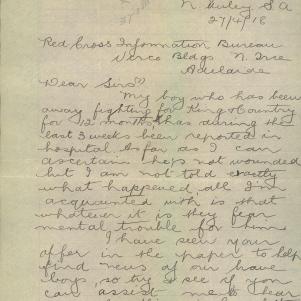 Nuley S A
27/4/18
Red Cross Information Bureau
Verco Bldgs N. Tce
Adelaide
Dear Sirs
My boy who has been
away fighting for King & Country
for 12 months has during the
last 3 weeks been reported in
hospital. As far as I can
ascertain he's not wounded
but I am not told exactly
what happened all I'm
acquainted with is that
whatever it is they fear
mental trouble for him
I have seen your
offer in the paper to help
find news of our brave
boys, so try & see if you
can assist me to hear